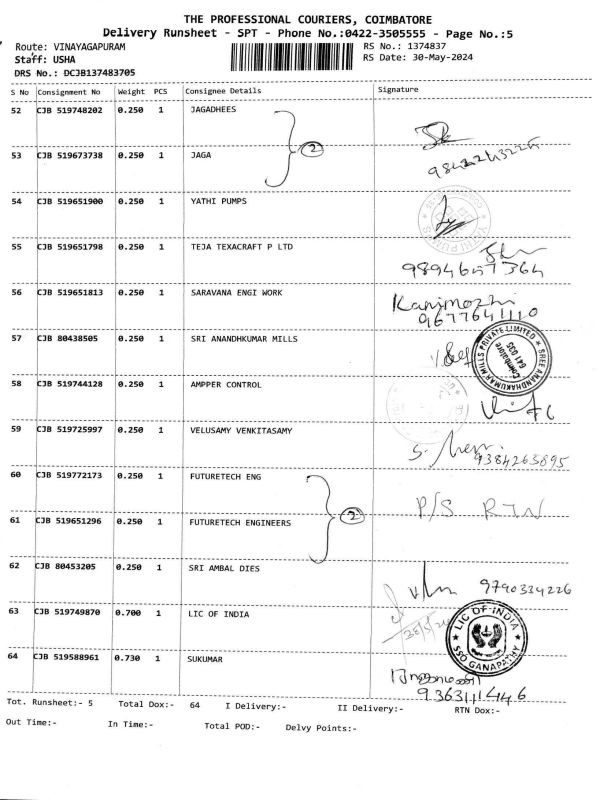 THE PROFESSIONAL COURIERS, COIMBATORE
Delivery Runsheet - SPT - Phone No.:0422-3505555 - Page No.:5
Route: VINAYAGAPURAM RS No.: 1374837
Staff: USHA RS Date: 30-May-2024
DRS No.: DCJB137483705
S No Consignment No Weight PCS Consignee Details Signature
52 CJB 519748202 0.250 1 JAGADHEES
53 CJB 519673738 0.250 1 JAGA 2
54 CJB 519651900 0.250 1 YATHI PUMPS
YATHI PUMPS
55 CJB 519651798 0.250 1 TEJA TEXACRAFT P LTD
9894657364
56 CJB 519651813 0.250 1 SARAVANA ENGI WORK Kanimozhi
9677641110
57 CJB 80438505 0.250 1 SRI ANANDHKUMAR MILLS
SREE ANANDHAKUMAR MILLS PRIVATE LIMITED
Coimbatore
641 035
58 CJB 519744128 0.250 1 AMPPER CONTROL
59 CJB 519725997 0.250 1 VELUSAMY VENKITASAMY
9384263895
60 CJB 519772173 0.250 1 FUTURETECH ENG P/S RTN
61 CJB 519651296 0.250 1 FUTURETECH ENGINEERS 2
62 CJB 80453205 0.250 1 SRI AMBAL DIES 9790334226
63 CJB 519749870 0.700 1 LIC OF INDIA
LIC OF INDIA
SSO GANAPATHY
64 CJB 519588961 0.730 1 SUKUMAR
9363111446
Tot. Runsheet:- 5 Total Dox:- 64 I Delivery:- II Delivery:- RTN Dox:-
Out Time:- In Time:- Total POD:- Delvy Points:-